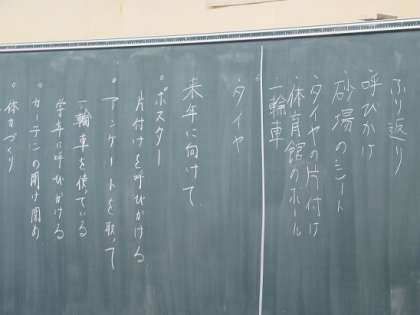 ふり返り
呼びかけ
砂場のシート
・タイヤの片付け
・体育館のボール
・一輪車
。タイヤ
来年に向けて
。ポスター
片付けを呼びかける
。アンケートを取って
一輪車を使っている
学年に呼びかける
。カーテンの開け閉め
。体力づくり